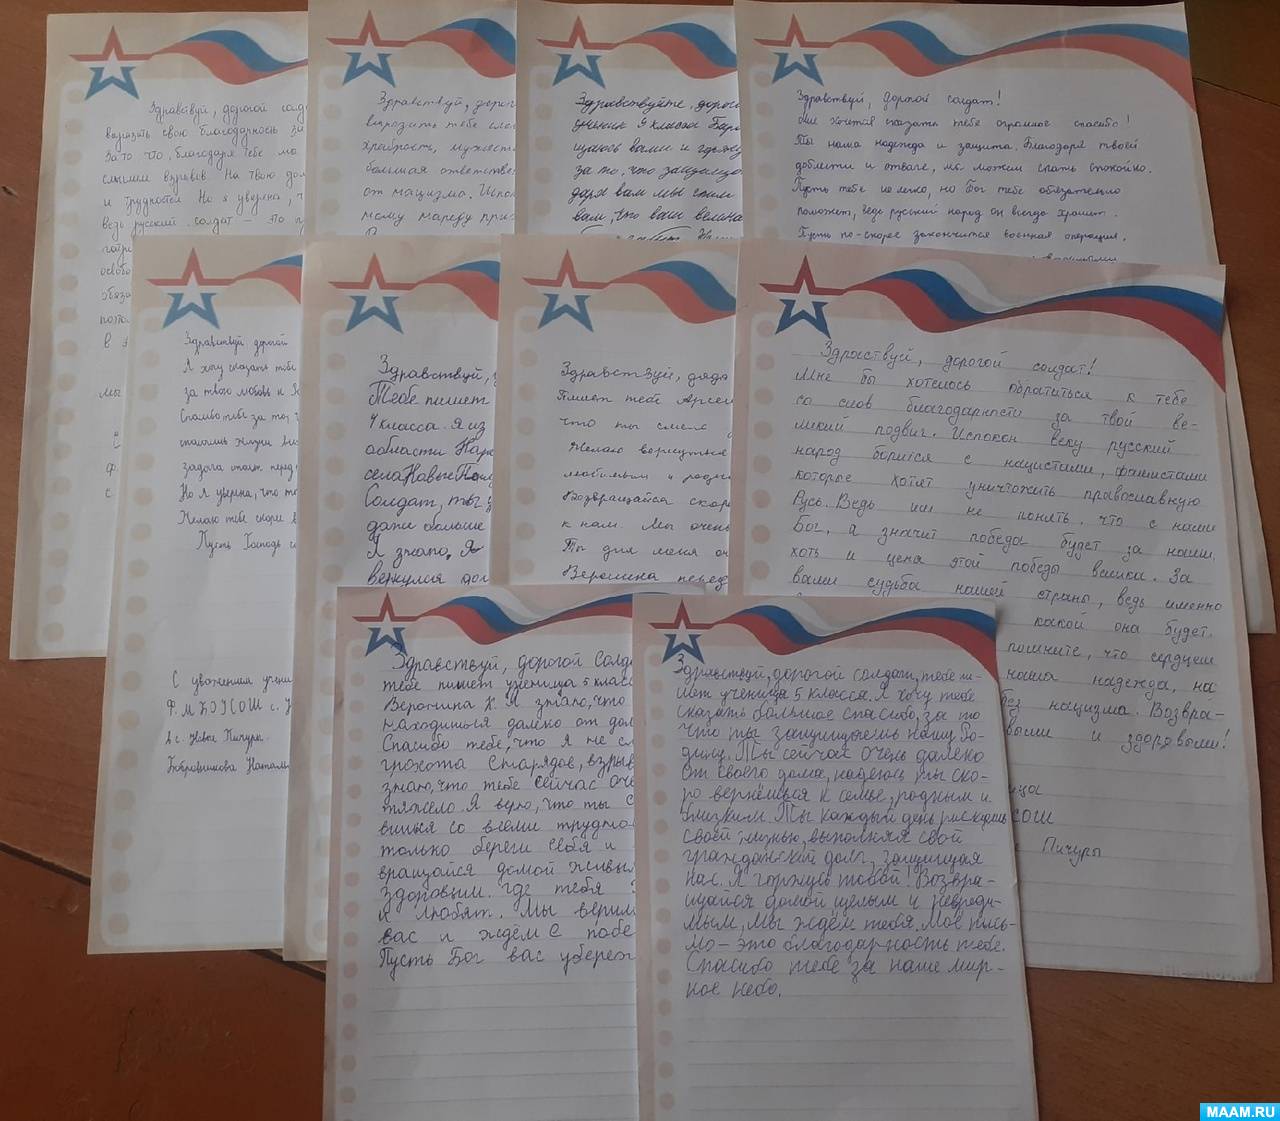 Здравствуй, дорогой солд
выразить свою благодарность за
За то что, благодаря тебе мо
слышим взрывов На твою дол
и трудностей Но я уверена, ч
ведь русский солдат - это
освобо
обяза
в
мы
Здравствуй, дорог
выразить тебе сло
храбрость, мужеств
большая ответствен
от нацизма. Испок
Здравствуйте, дорого
ученик 9 класса
за то, что защищае
вам, что ваш
Здравствуй, дорогой солдат!
Мне хочется сказать тебе огромное спасибо!
Ты наша надежда и защита. Благодаря твоей
доблести и отваге, мы можем спать спокойно.
Пусть тебе не легко, но Бог тебе обязательно
поможет, ведь русский народ он всегда хранит.
Пусть по-скорее закончится военная операция,
Здравствуй дорогой
Я хочу сказать тебе
за твою любовь к
Спасибо тебе за то,
задача стоит перед
Но я уверена, что т
Желаю тебе скорее в
Пусть Господь
С уважением учени
Ф.МБОУСОШ с.
в с. Новые Пичуры
Здравствуй,
Тебе пишет
4 класса. Я из
области Нар
села Новые Пич
Солдат, ты з
даже больше
Я знаю,
вернулся дом
Здравствуй, дядя
Пишет тебе Арсен
что ты смело
Желаю вернуться
любимым и родны
Возвращайся скор
к нам. Мы очень
Ты для меня
Здравствуй, дорогой солдат!
Мне бы хотелось обратиться к тебе
со слов благодарности за твой ве-
ликий подвиг. Испокон веку русский
народ борится с нацистами, фашистами
которые хотят уничтожить православную
Русь. Ведь им не понять, что с нами
Бог, а значит победа будет за нами,
хоть и цена этой победы велика. За
вами судьба нашей страны, ведь именно
какой она будет.
помните, что сердцем
наша надежда, на
без нацизма. Возвра-
выми и здоровыми!
СОШ
Пичуры
Здравствуй, дорогой Солда
тебе пишет ученица 5 класс
Вероника К. Я знаю, что
находишься далеко от дом
Спасибо тебе, что я не сл
грохота снарядов, взрыв
знаю, что тебе сейчас оче
тяжело. Я верю, что ты с
вишься со всеми трудно
только береги себя и
вращайся домой живым
здоровым. где тебя
и любят. Мы верим
вас и ждём с побе
Пусть Бог вас убереж
Здравствуй, дорогой солдат, тебе пи-
шет ученица 5 класса. Я хочу тебе
сказать большое спасибо, за то
что ты защищаешь нашу Ро-
дину. Ты сейчас очень далеко
от своего дома, надеюсь ты ско-
ро вернёшься к семье, родным и
близким. Ты каждый день рискуешь
своей жизнью, выполняя свой
гражданский долг, защищая
нас. Я горжусь тобой! Возвра-
щайся домой целым и невреди-
мым, мы ждём тебя. Моё пись-
мо - это благодарность тебе.
Спасибо тебе за наше мир-
ное небо.
MAAM.RU